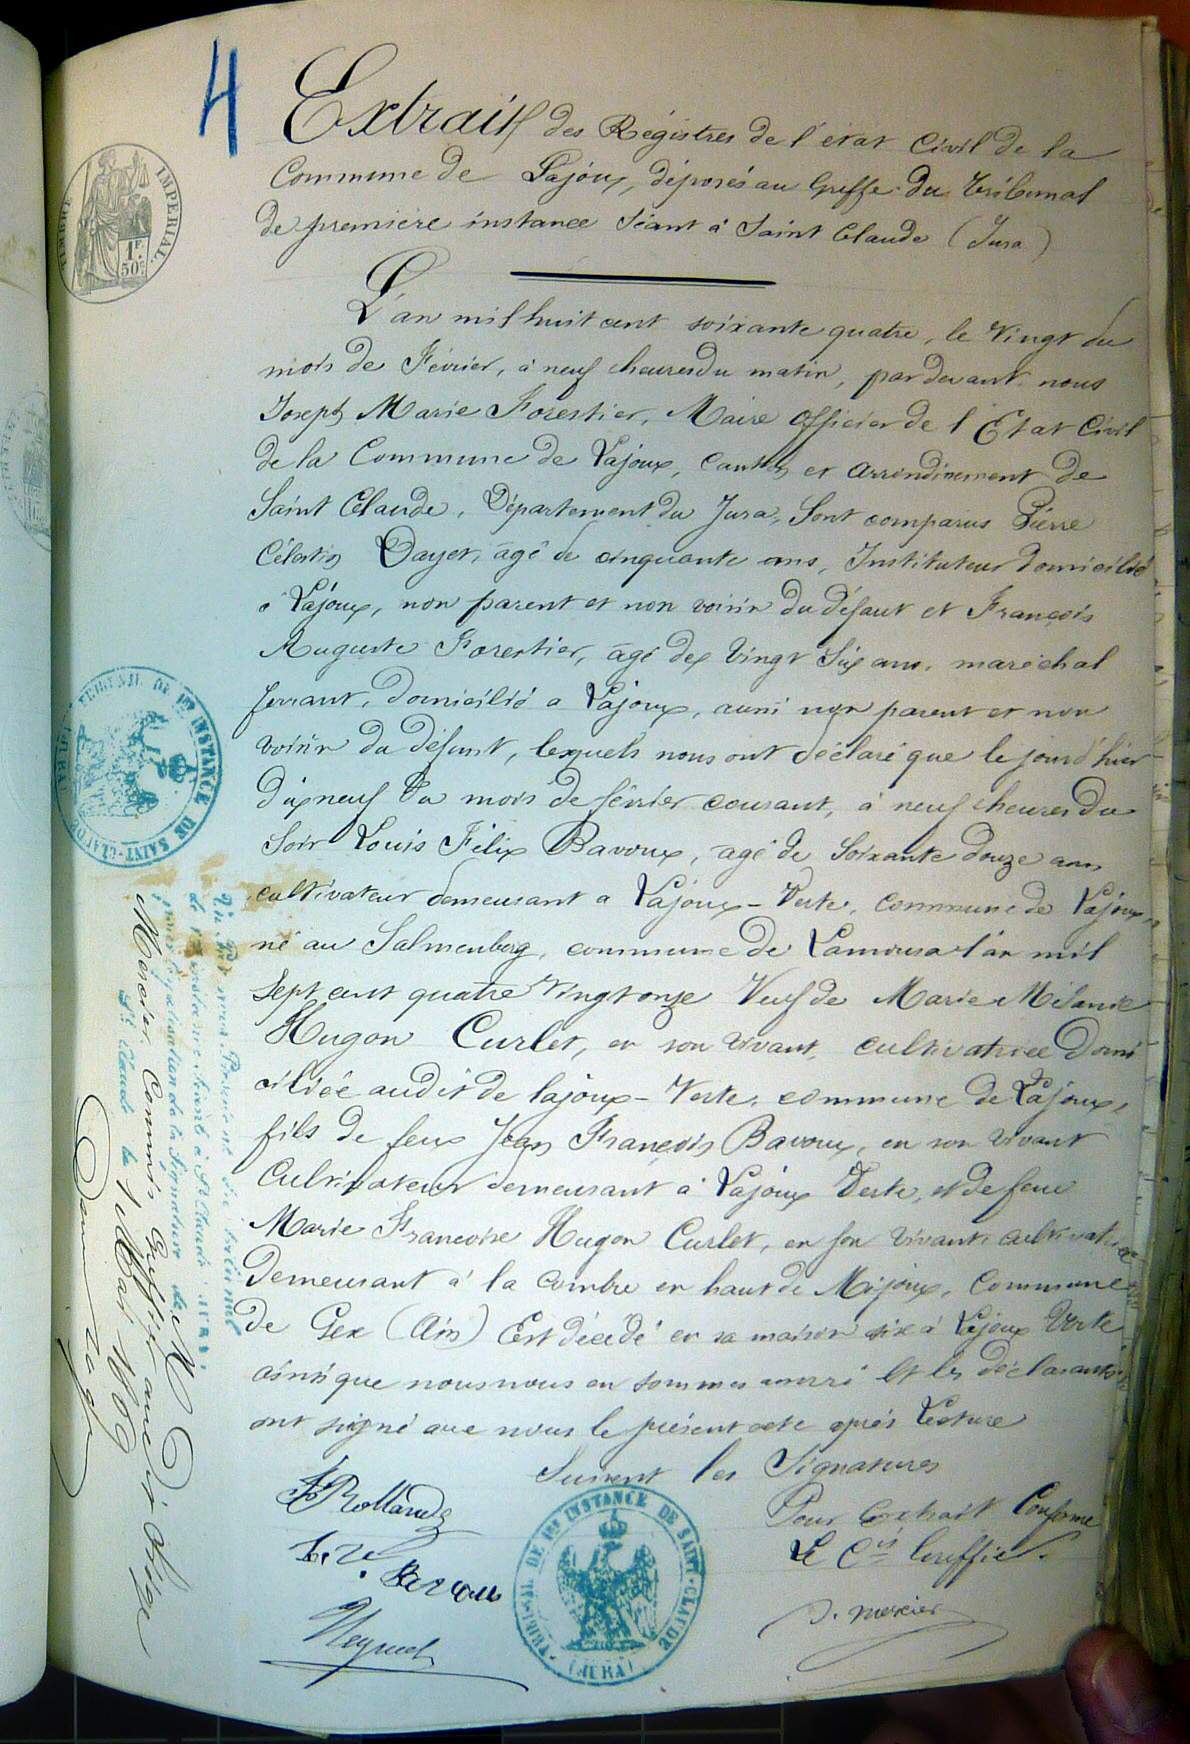 4
Extrait des Régistres de l'état Civil de la
Commune de Lajoux, déposés au Greffe du Tribunal
de première instance séant à Saint Claude (Jura)
TIMBRE IMPERIAL
1F. 50c.
L'an mil huit cent soixante quatre, le vingt du
mois de Février, à neuf heures du matin, par devant nous
Joseph Marie Forestier, Maire officier de l'Etat Civil
de la Commune de Lajoux, Canton et arrondissement de
Saint Claude, Département du Jura, Sont comparus Pierre
Célestin Dayet, âgé de cinquante ans, Instituteur domicilié
à Lajoux, non parent et non voisin du défunt et François
Auguste Forestier, âgé de vingt six ans, maréchal
ferrant, domicilié a Lajoux, aussi non parent et non
voisin du défunt, lesquels nous ont déclaré que le jour d'hier
dixneuf du mois de février courant, à neuf heures du
soir Louis Félix Bavoux, âgé de soixante douze ans
cultivateur demeurant a Lajoux-Verte, commune de Lajoux,
né au Salmenberg, commune de Lamoura l'an mil
sept cent quatre vingt onze Veuf de Marie Mélanie
Hugon Curlet, en son vivant, cultivatrice domi
ciliée audit de lajoux-Verte, commune de Lajoux,
fils de feux Jean François Bavoux, en son vivant
Cultivateur demeurant à Lajoux Verte, et de feue
Marie Francoise Hugon Curlet, en son vivant cultivatrice
demeurant à la Combe en haut de Mijoux, Commune
de Gex (Ain) Est décédé en sa maison six à Lajoux Verte
ainsi que nous nous en sommes assuré et les déclarants
ont signé avec nous le présent acte après lecture
Suivent les Signatures
Pour extrait Conforme
Le Cis Greffier.
J. Mercier
F Rolland
Bavoux
TRIBUNAL DE 1ERE INSTANCE DE SAINT-CLAUDE
(JURA)
TRIBUNAL DE 1ERE INSTANCE DE SAINT-CLAUDE
(JURA)
Vu par nous Président du tribunal
de 1ère instance séant à St Claude (Jura),
pour légalisation de la signature de M.
Mercier Commis Greffier
St Claude le 1 Mai 1869